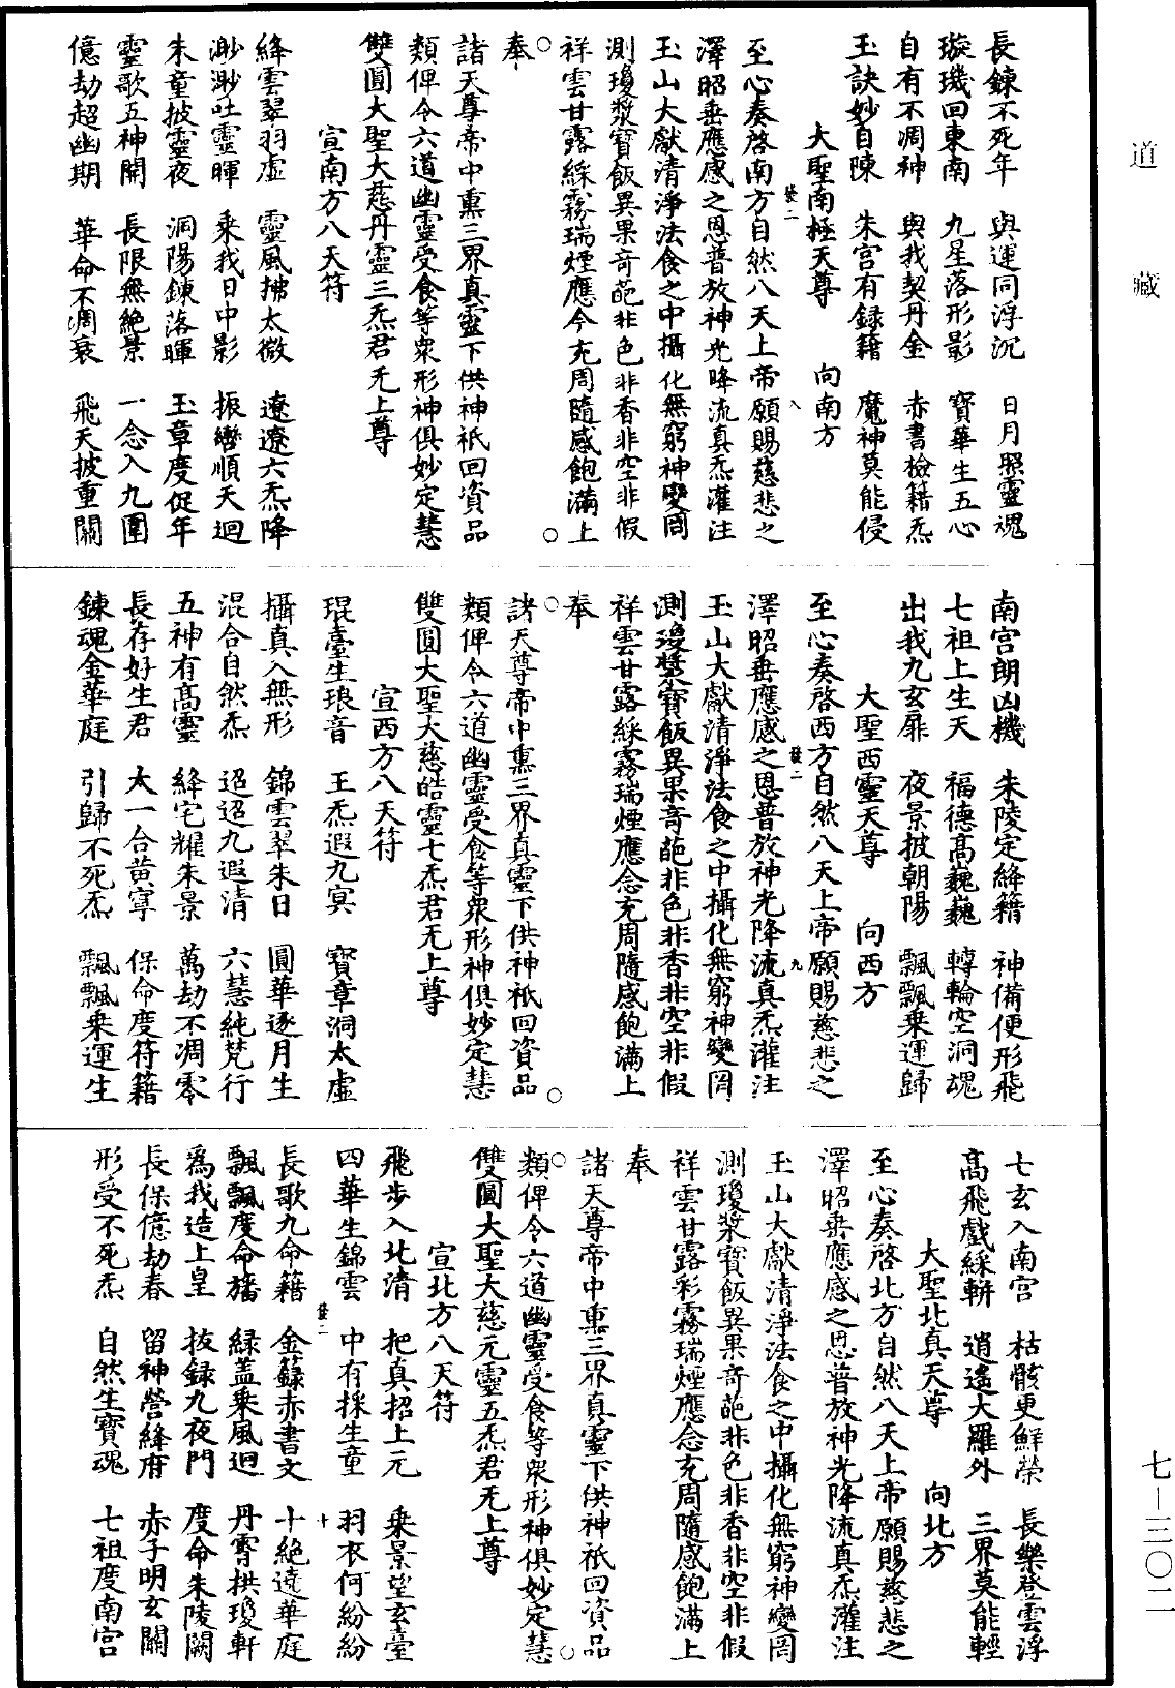 道藏
長鍊不死年　與運同浮沉　日月照靈魂
璇璣回東南　九星落形影　寶華生五心
自有不凋神　與我契丹金　赤書檢籍炁
玉訣妙自陳　朱宮有録籍　魔神莫能侵
大聖南極天尊　向南方
至心奏啓南方自然八天上帝願賜慈悲之
澤昭垂應感之恩普放神光降流真炁灌注
玉山大獻清淨法食之中攝化無窮神變罔
測瓊漿寶飯異果奇葩非色非香非空非假
祥雲甘露綵霧瑞煙應念充周隨感飽滿上
奉
諸天尊帝中熏三界真靈下供神祇回資品
類俾令六道幽靈受食等衆形神俱妙定慧
雙圓大聖大慈丹靈三炁君无上尊
宣南方八天符
絳雲翠羽虛　靈風拂太微　遼遼六炁降
渺渺吐靈暉　乘我日中影　振轡順天迴
朱童披靈夜　洞陽鍊落暉　玉章度促年
靈歌五神開　長限無絕景　一念入九圍
億劫超幽期　華命不凋衰　飛天披重關
南宮朗凶機　朱陵定絳籍　神備便形飛
七祖上生天　福德高巍巍　轉輪空洞魂
出我九玄扉　夜景披朝陽　飄飄乘運歸
大聖西靈天尊　向西方
至心奏啓西方自然八天上帝願賜慈悲之
澤昭垂應感之恩普放神光降流真炁灌注
玉山大獻清淨法食之中攝化無窮神變罔
測瓊漿寶飯異果奇葩非色非香非空非假
祥雲甘露綵霧瑞煙應念充周隨感飽滿上
奉
諸天尊帝中熏三界真靈下供神祇回資品
類俾令六道幽靈受食等衆形神俱妙定慧
雙圓大聖大慈皓靈七炁君无上尊
宣西方八天符
琨臺生琅音　王炁遐九冥　寶章洞太虛
攝真入無形　錦雲翠朱日　圓華逐月生
混合自然炁　迢迢九遐清　六慧純梵行
五神有高靈　絳宅耀朱景　萬劫不凋零
長存好生君　太一合黃寧　保命度符籍
鍊魂金華庭　引歸不死炁　飄飄乘運生
七玄入南宮　枯骸更鮮榮　長樂登雲浮
高飛戲綵軿　逍遙大羅外　三界莫能輕
大聖北真天尊　向北方
至心奏啓北方自然八天上帝願賜慈悲之
澤昭垂應感之恩普放神光降流真炁灌注
玉山大獻清淨法食之中攝化無窮神變罔
測瓊漿寶飯異果奇葩非色非香非空非假
祥雲甘露彩霧瑞煙應念充周隨感飽滿上
奉
諸天尊帝中熏三界真靈下供神祇回資品
類俾令六道幽靈受食等衆形神俱妙定慧
雙圓大聖大慈元靈五炁君无上尊
宣北方八天符
飛步入北清　把真招上元　乘景望玄臺
四華生錦雲　中有採生童　羽衣何紛紛
長歌九命籍　金籙赤書文　十絕遶華庭
飄飄度命旛　緑盖乘風迴　丹霄拱瓊軒
爲我造上皇　拔録九夜門　度命朱陵闕
長保億劫春　留神營絳府　赤子明玄關
形受不死炁　自然生寶魂　七祖度南宮
七－三〇二